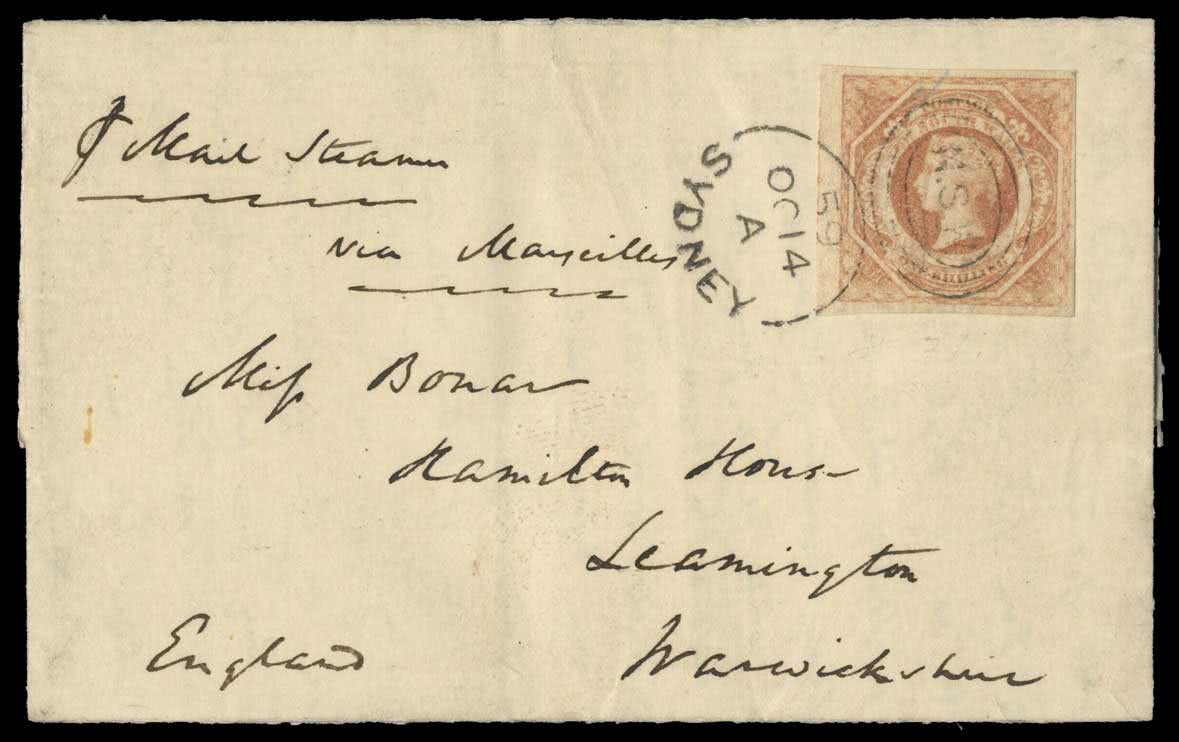 ⅌ Mail Steamer
via Marseilles
Miss Bonar
Hamilton House
Leamington
Warwickshire
England
SYDNEY
A
OC 14
59
N.S.W
ONE SHILLING